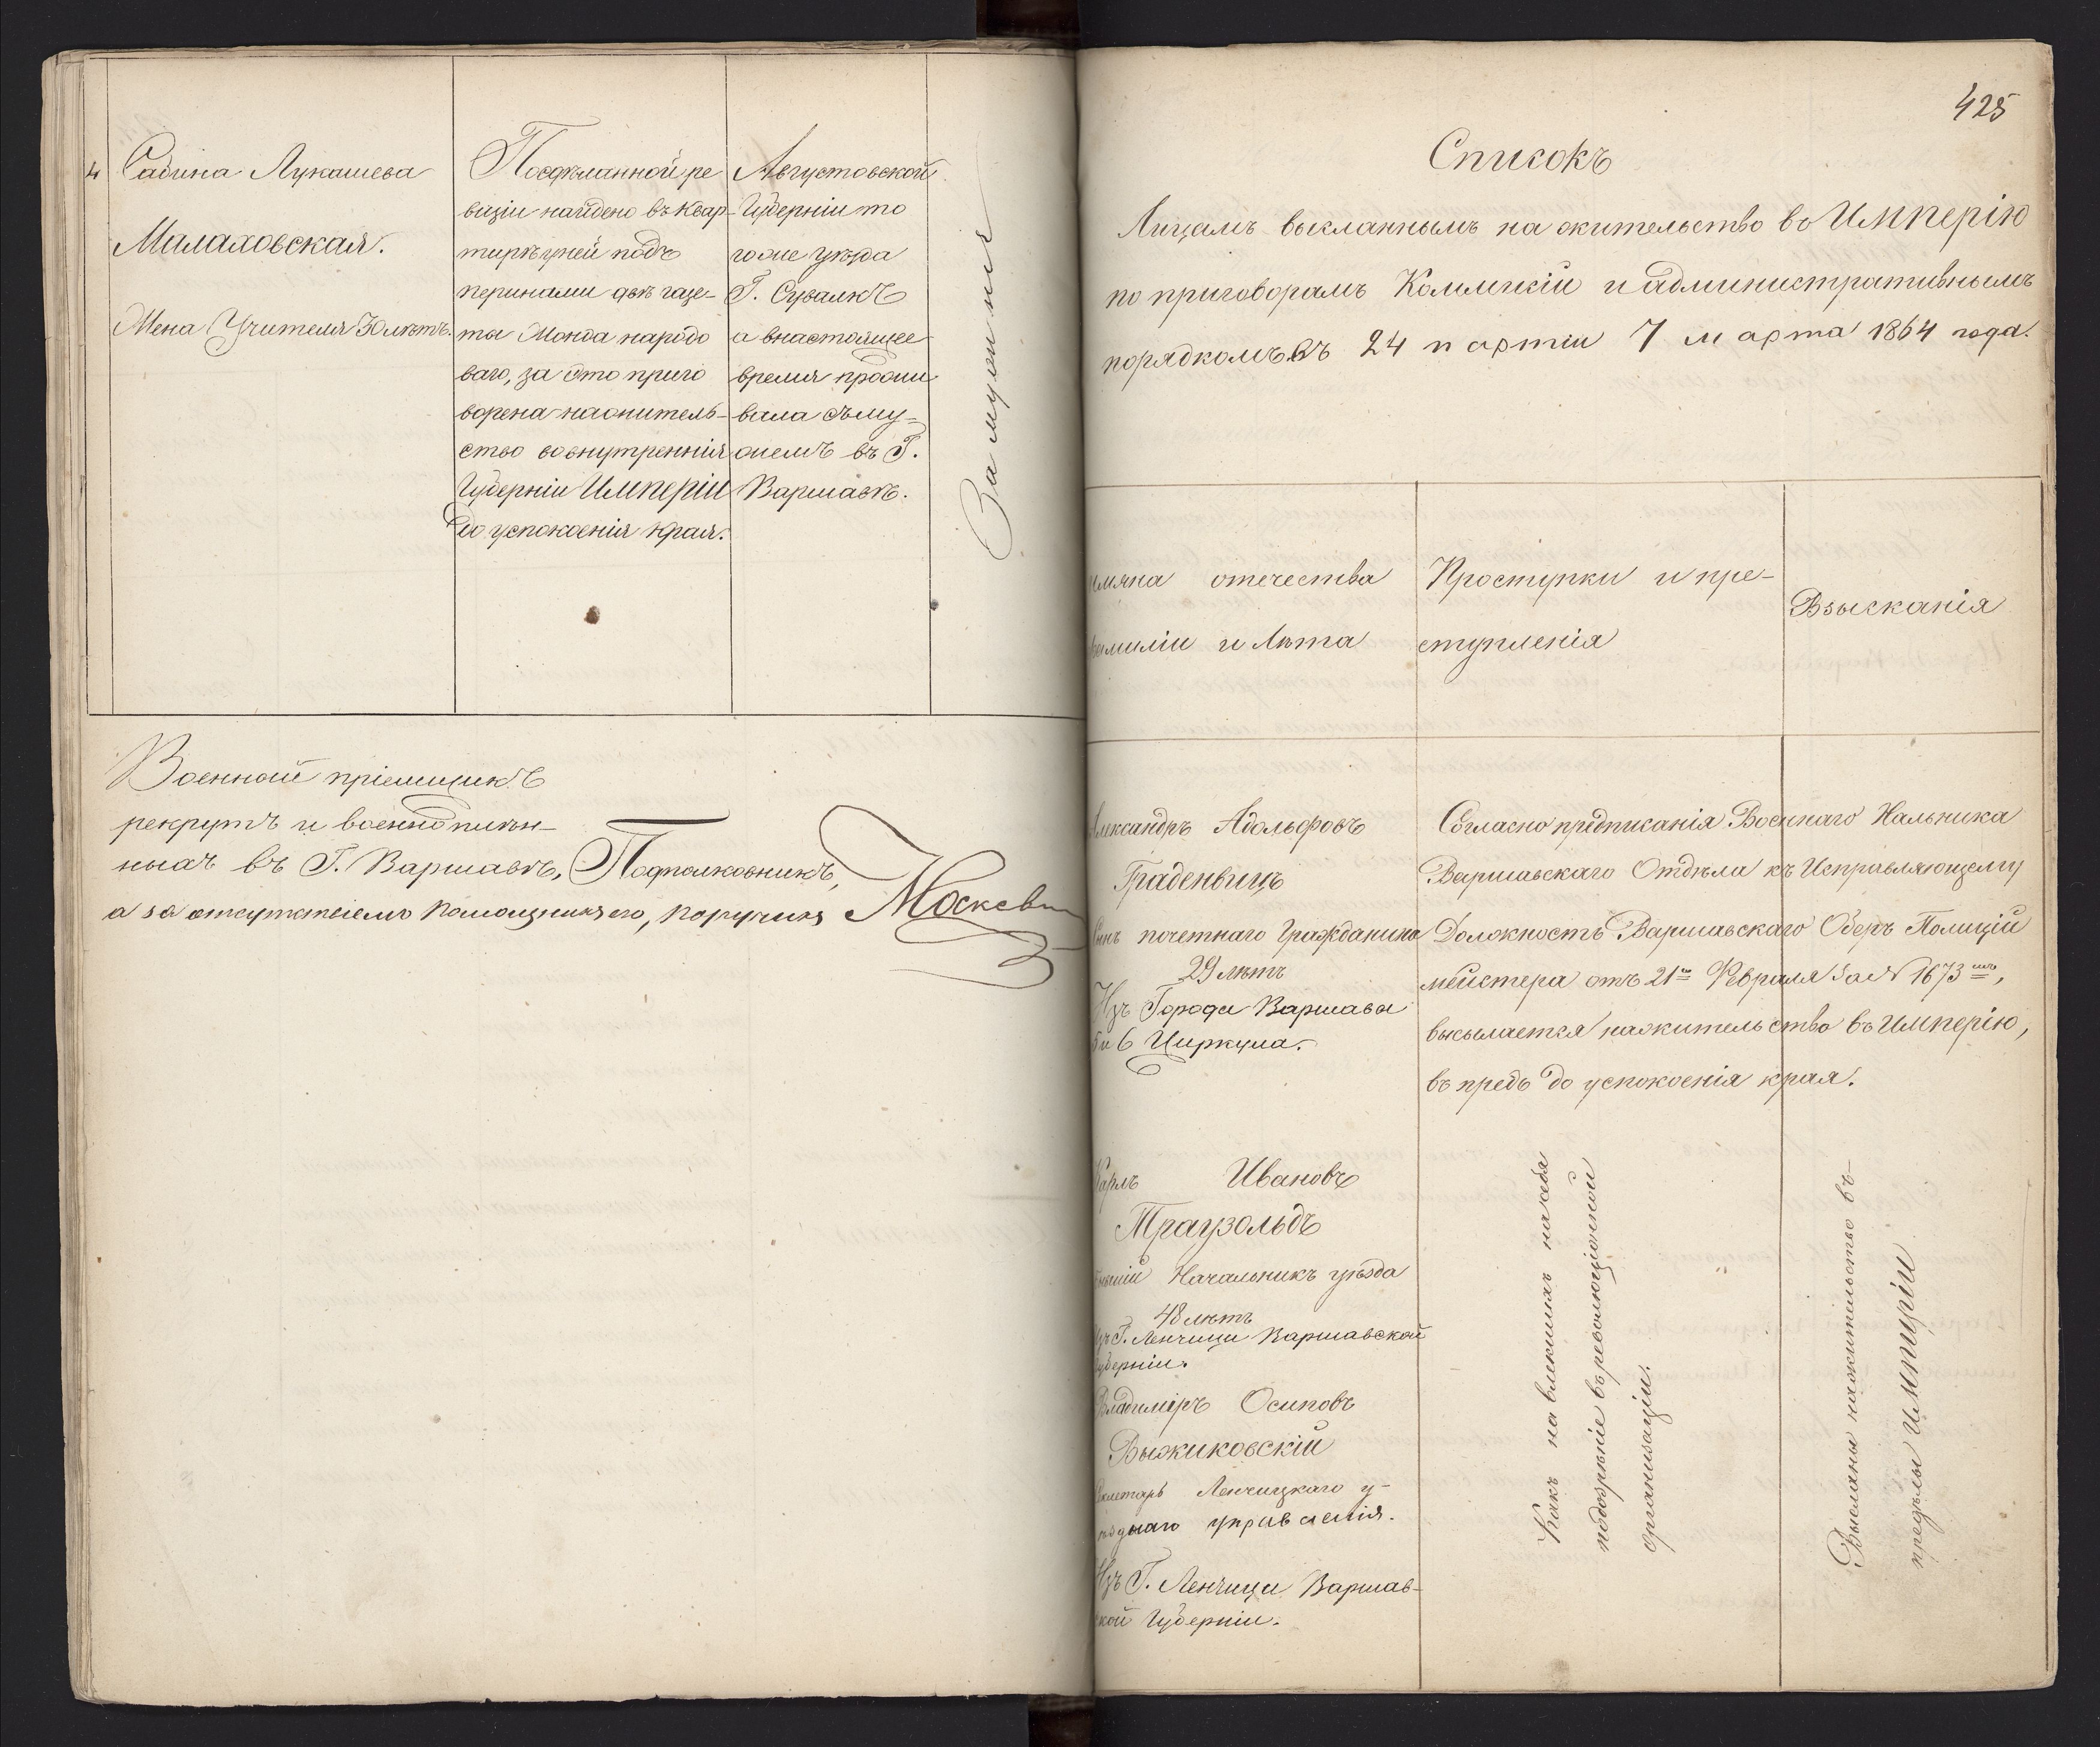 4
Сабина Лукашева
Малаховская.
Жена Учителя 30 лѣтъ.
По сдѣланной ре
визіи найдено въ Квар-
тирѣ у ней подъ
перинами двѣ газе-
ты Монда народо
ваго, за что приго
ворена на житель-
ство во внутреннія
Губерніи Имперіи
до успокоенія края.
Августовской
Губерніи то
гоже уѣзда
Г. Сувалкъ
а в настоящее
время прожи
вала съ му-
жемъ въ Г.
Варшавѣ.
Замужняя
Военной пріемщикъ
рекрутъ и военноплѣн-
ныхъ въ Г. Варшавѣ, Подполковникъ,
а за отсутствіемъ помощникъ его, поручикъ
425
Списокъ
Лицамъ высланнымъ на жительство въ Имперію
по приговорамъ Коммисіи и административнымъ
порядкомъ въ 24 партіи 7 марта 1864 года.
имяна отечества
фамиліи и лѣта
Проступки и пре-
ступленія
Взысканія
Александръ Адольфовъ
Граденвицъ
Сынъ почетнаго Гражданина
29 лѣтъ
Изъ Города Варшавы
5 и 6 Циркула.
Согласно предписанія Военнаго Нальника
Варшавскаго Отдѣла къ Исправляющему
Должность Варшавскаго Оберъ Полиціи
мейстера отъ 21го Февраля за № 1673мъ,
высылается на жительство въ Имперію,
въ предь до успокоенія края.
Карлъ Ивановъ
Траузольдъ
бывшій Начальникъ уѣзда
48 лѣтъ
изъ Г. Ленчицы Варшавской
Губерніи.
Владиміръ Осиповъ
Выжиковскій
Секлетарь Ленчицкаго у-
ѣзднаго управленія.
Изъ Г. Ленчицы Варшав-
ской Губерніи.
Какъ навлекшихъ на себя
подозрѣніе въ революціонной
организаціи.
Высланы на жительство въ-
предѣлы Имперіи